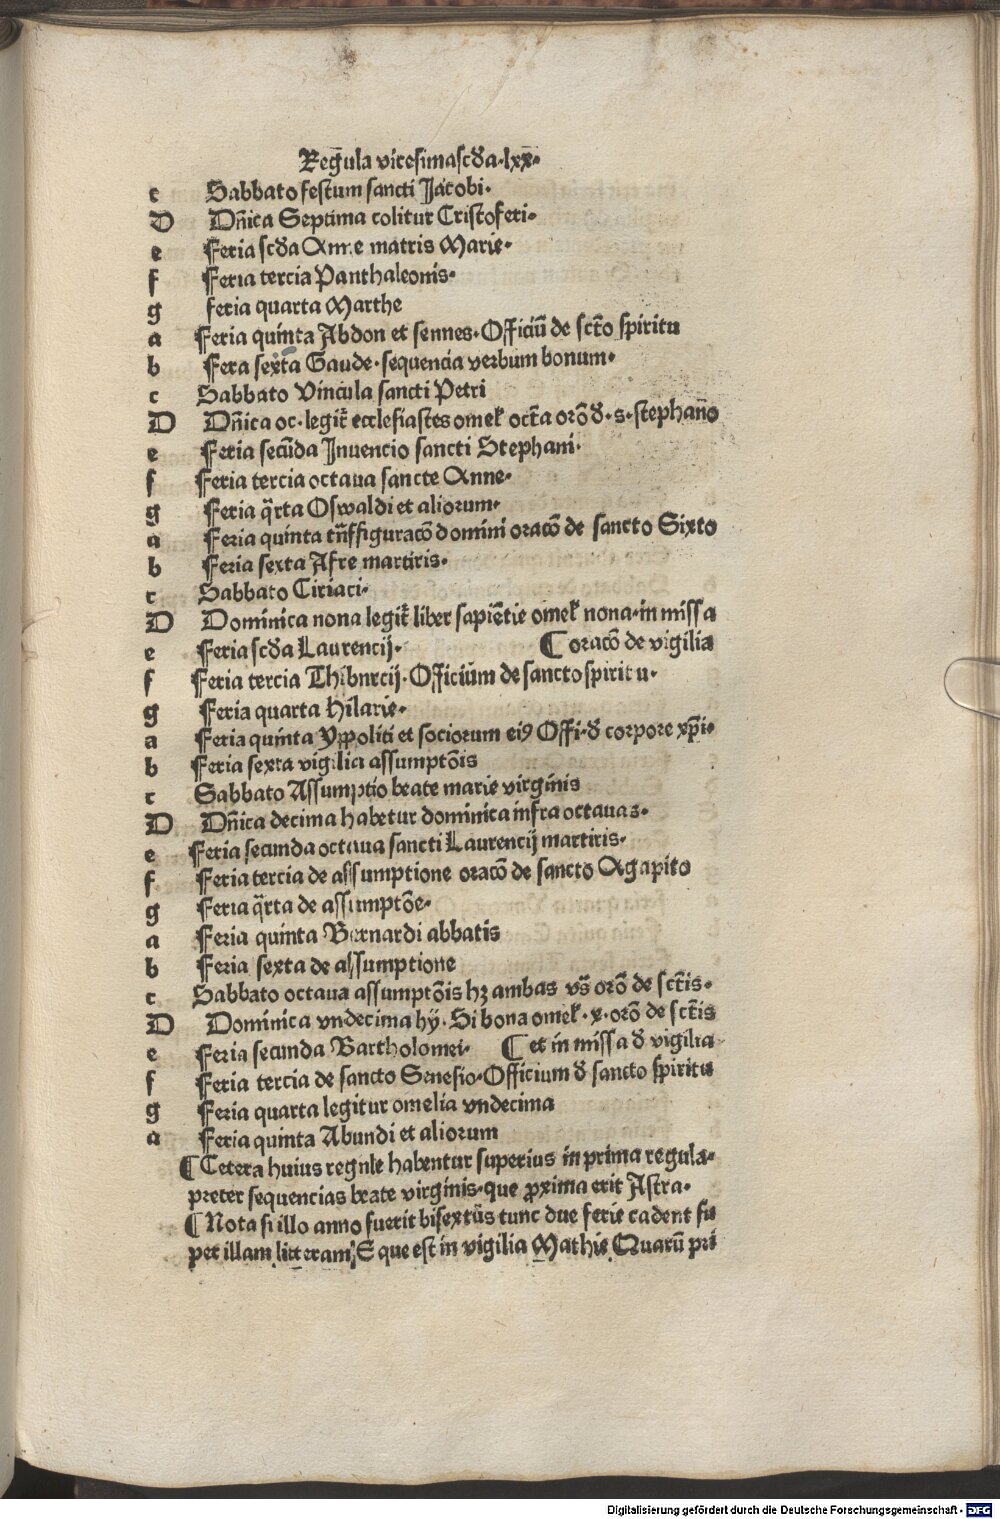 Regula vicesimascďa·lxx·
c Sabbato festum sancti Jacobi·
D Dñica Septima colitur Cristoferi·
e Feria scďa Anne matris Marie·
f Feria tercia Panthaleonis·
g feria quarta Marthe
a Feria quinta Abdon et sennes·Officiū de scto spiritu
b Fera sexta Gaude·sequencia verbum bonum·
c Sabbato Vincula sancti Petri
D Dñica oc·legit̄ ecclesiastes omek̄ octa orō ď·s·stephano
e Feria secūda Inuencio sancti Stephani·
f Feria tercia octaua sancte Anne·
g Feria q̄rta Oswaldi et aliorum·
a Feria quinta tñsfiguracō domini oracō de sancto Sixto
b Feria sexta Afre martiris·
c Sabbato Ciriaci·
D Dominica nona legit̄ liber sapiētie omek̄ nona·in missa
e Feria scďa Laurencij· ¶ oracō de vigilia
f Feria tercia Thiburcij·Officiūm de sancto spiritu·
g Feria quarta hilarie·
a Feria quinta Yppoliti et sociorum eiꝰ Offi·ď corpore xp̄i·
b Feria sexta vigilia assumptōis
c Sabbato Assumptio beate marie virginis
D Dñica decima habetur dominica infra octauas·
e Feria secunda octaua sancti Laurencij martiris·
f Feria tercia de assumptione oracō de sancto Agapito
g Feria q̄rta de assumptōe·
a Feria quinta Bernardi abbatis
b Feria sexta de assumptione
c Sabbato octaua assumptōis hꝫ ambas vs̄ orō de sctīs·
D Dominica vndecima hij·Si bona omek̄·x·orō de sctīs
e Feria secunda Bartholomei· ¶ et in missa ď vigilia
f Feria tercia de sancto Genesio·Officium ď sancto spiritu
g Feria quarta legitur omelia vndecima
a Feria quinta Abundi et aliorum
¶ Cetera huius regule habentur superius in prima regula·
preter sequencias beate virginis·que ꝓxima erit Astra·
¶ Nota si illo anno fuerit bisextūs tunc due ferie cadent su
per illam litteram E que est in vigilia Mathie Quarū pri
Digitalisierung gefördert durch die Deutsche Forschungsgemeinschaft - DFG